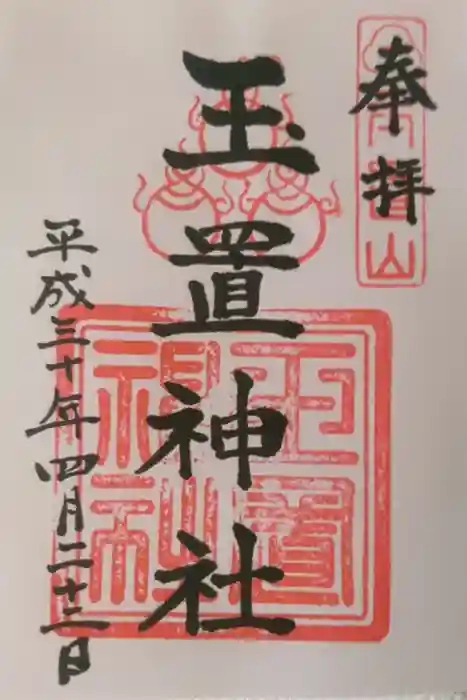 奉拝
玉置山
玉置神社
玉置神社
平成三十年四月二十三日